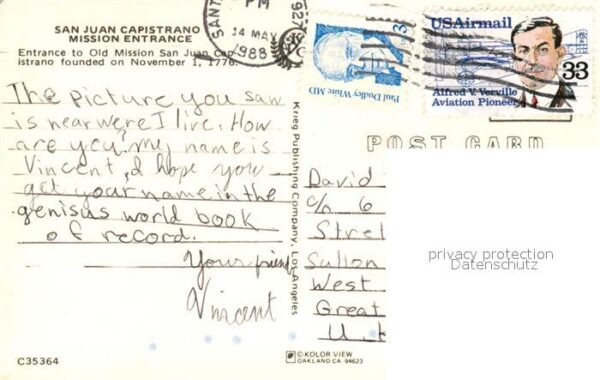 SAN JUAN CAPISTRANO
MISSION ENTRANCE
Entrance to Old Mission San Juan Cap-
istrano founded on November 1, 1776.
The picture you saw
is near were I live. How
are you, my name is
Vincent, I hope you
get your name in the
genisus world book
of record.
Your friend
Vincent
C35364
SANT
PM
14 MAY
1988
927
Paul Dudley White MD
3
USAirmail
33
Alfred V. Verville
Aviation Pioneer
POST CARD
Krieg Publishing Company, Los Angeles
David
c/o 6
Stret
Sutton
West
Great
U.K
privacy protection
Datenschutz
© KOLOR VIEW
OAKLAND CA. 94623